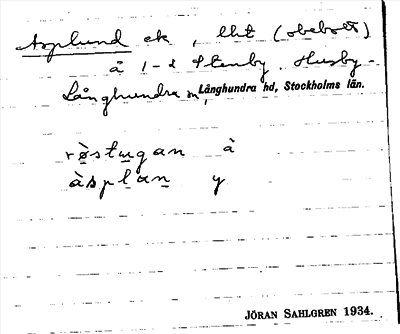 Asplund ek, lht (obebott)
å 1-2 Stenby. Husby-
Långhundra sn, Långhundra hd, Stockholms län.
røstugan à
àsplan y
JÖRAN SAHLGREN 1934.